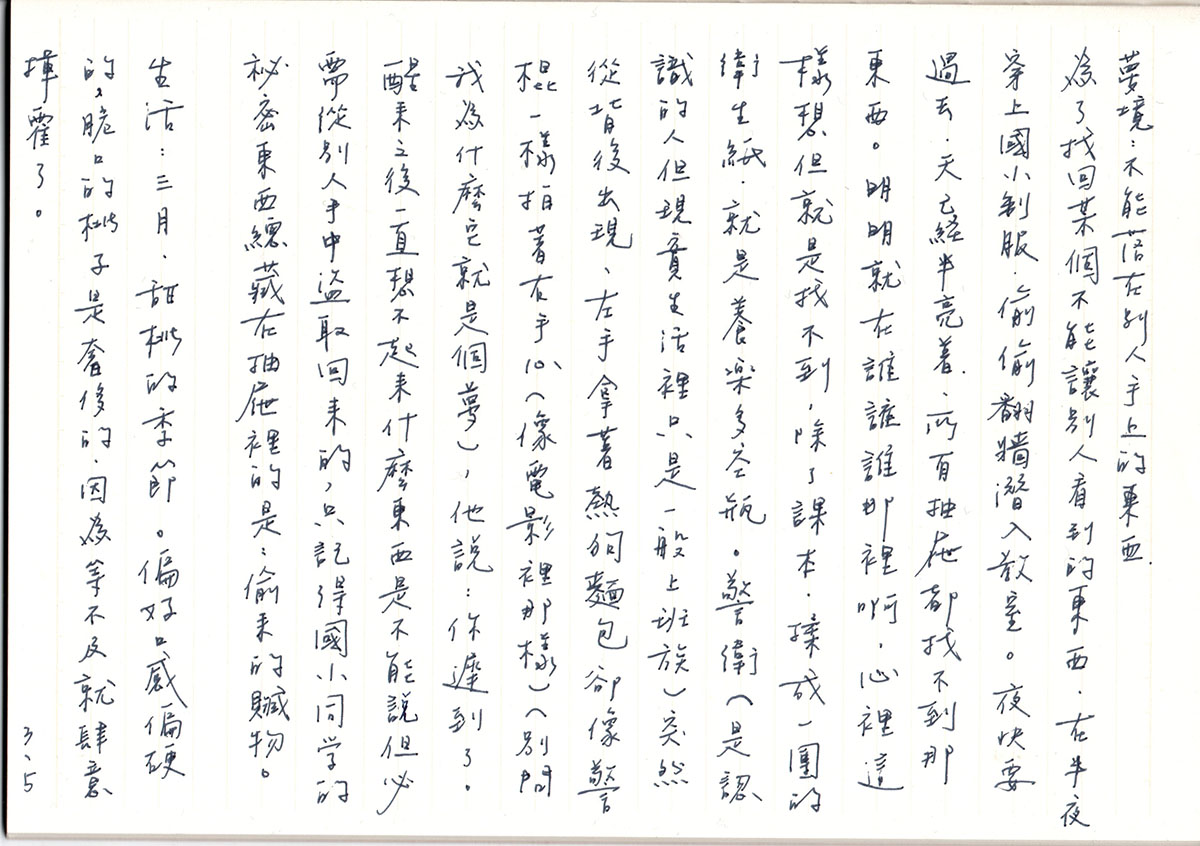 夢境：不能落在別人手上的東西.
為了找回某個不能讓別人看到的東西．在半夜
穿上國小制服．偷偷翻牆潛入教室。夜快要
過去．天已經半亮著．所有抽屜都找不到那
東西。明明就在誰誰誰那裡啊，心裡這
樣想但就是找不到，除了課本．揉成一團的
衛生紙．就是養楽多空瓶。警衛（是認
識的人但現實生活裡只是一般上班族）突然
從背後出現、左手拿著熱狗麵包卻像警
棍一樣拍著右手心（像電影裡那樣）（別問
我為什麼它就是個夢），他說：你遲到了。
醒来之後一直想不起来什麼東西是不能說但必
需從別人手中盜取回来的，只記得國小同学的
祕密東西總藏在抽屜裡的是：偷来的贓物。
生活：三月、甜桃的季節。偏好口感偏硬
的，脆口的桃子是奢侈的，因為等不及就肆意
揮霍了。
3、5